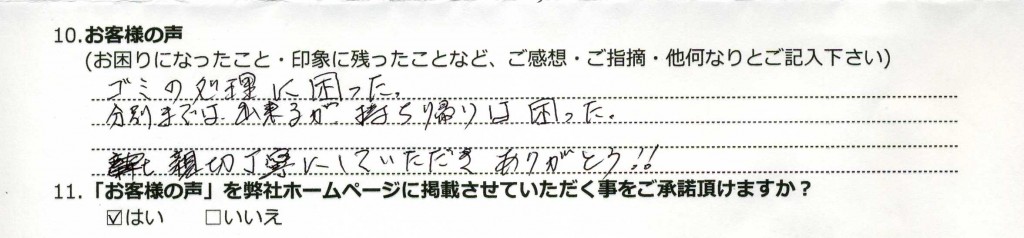 10.お客様の声
(お困りになったこと・印象に残ったことなど、ご感想・ご指摘・他何なりとご記入下さい)
ゴミの処理に困った。
分別までは出来るが持ち帰りは困った。
親切丁寧にしていただきありがとう!!
11.「お客様の声」を弊社ホームページに掲載させていただく事をご承諾頂けますか？
☑はい　□いいえ